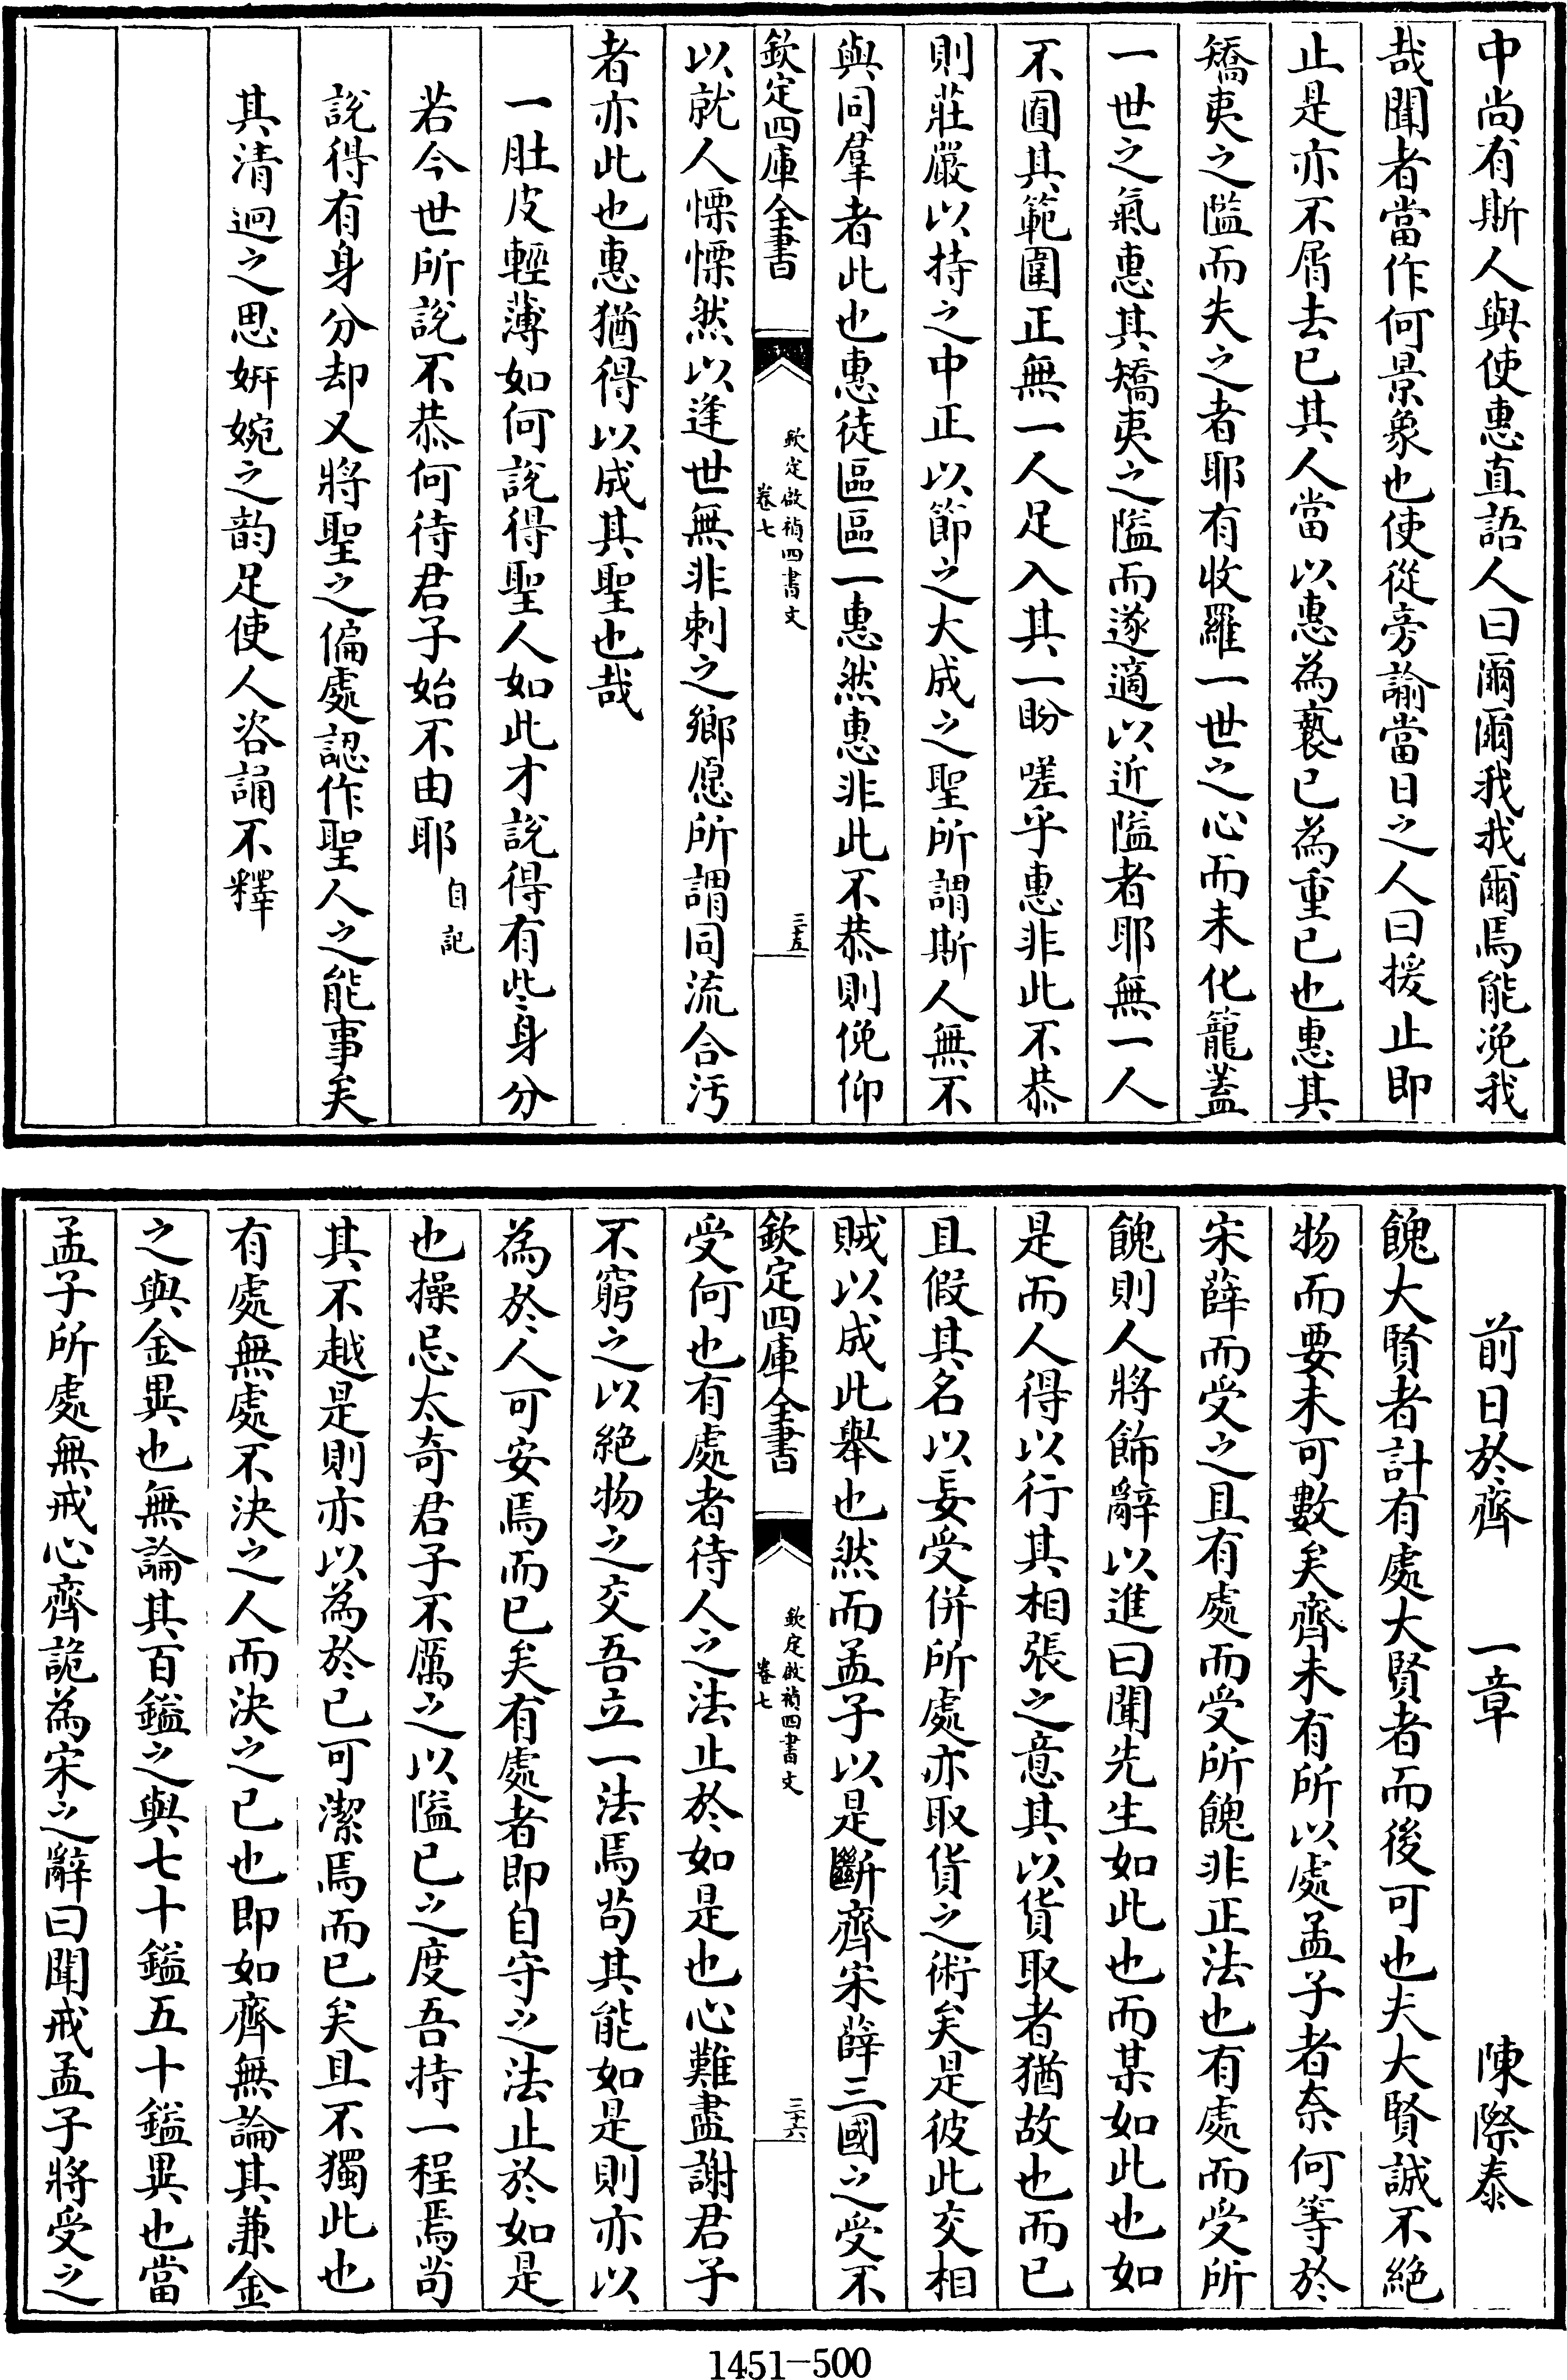 中尚有斯人與使惠直語人曰爾爾我我爾焉能浼我
哉聞者當作何景象也使從旁諭當日之人曰援止即
止是亦不屑去已其人當以惠為褻已為重已也惠其
矯夷之隘而失之者耶有收羅一世之心而未化籠蓋
一世之氣惠其矯夷之隘而遂適以近隘者耶無一人
不囿其範圍正無一人足入其一盼嗟乎惠非此不恭
則莊嚴以持之中正以節之大成之聖所謂斯人無不
與同羣者此也惠徒區區一惠然惠非此不恭則俛仰
欽定四庫全書
欽定啟禎四書文
卷七
三五
以就人慄慄然以逢世無非刺之鄉愿所謂同流合汚
者亦此也惠猶得以成其聖也哉
一肚皮輕薄如何說得聖人如此才說得有些身分
若今世所說不恭何待君子始不由耶自記
說得有身分却又將聖之偏處認作聖人之能事矣
其清迥之思妍婉之韵足使人咨誦不釋
前日於齊 一章 陳際泰
餽大賢者計有處大賢者而後可也夫大賢誠不絶
物而要未可數矣齊未有所以處孟子者奈何等於
宋薛而受之且有處而受所餽非正法也有處而受所
餽則人將飾辭以進曰聞先生如此也而某如此也如
是而人得以行其相張之意其以貨取者猶故也而已
且假其名以妄受併所處亦取貨之術矣是彼此交相
賊以成此舉也然而孟子以是斷齊宋薛三國之受不
欽定四庫全書
欽定啟禎四書文
卷七
三六
受何也有處者待人之法止於如是也心難盡謝君子
不窮之以絶物之交吾立一法焉苟其能如是則亦以
為於人可安焉而已矣有處者即自守之法止於如是
也操忌太奇君子不厲之以隘已之度吾持一程焉苟
其不越是則亦以為於已可潔焉而已矣且不獨此也
有處無處不決之人而決之已也即如齊無論其兼金
之與金異也無論其百鎰之與七十鎰五十鎰異也當
孟子所處無戒心齊詭為宋之辭曰聞戒孟子將受之
1451-500